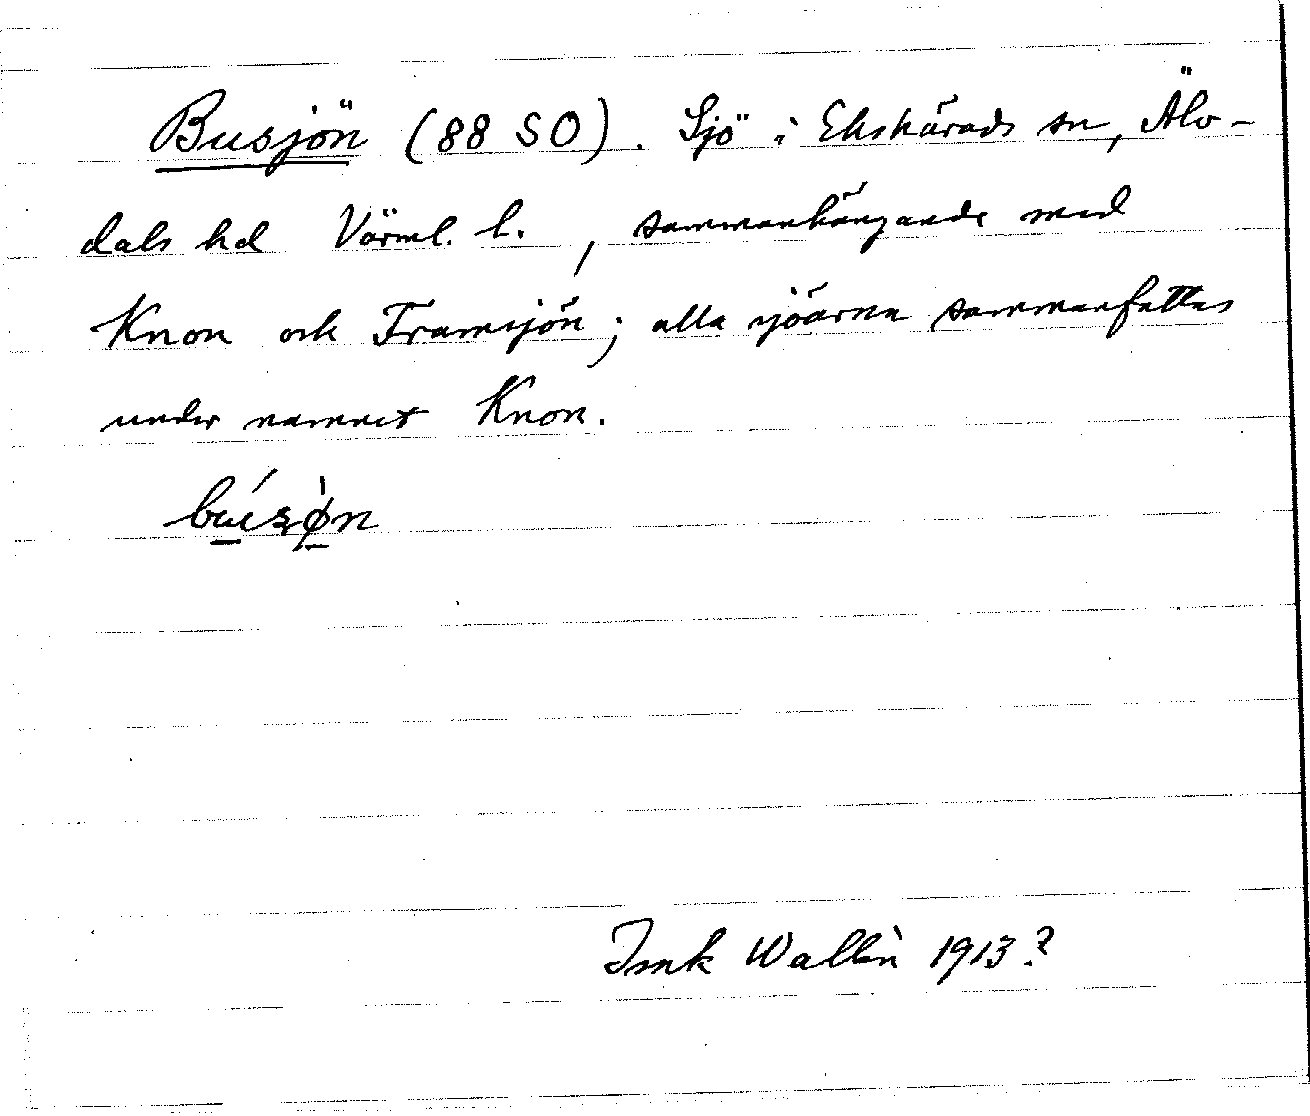 Busjön (88 SO). Sjö i Ekshärads sn, Älv-
dals hd Värml. l., sammanhängande med
Knon och Framsjön; alla sjöarna sammanfattas
under namnet Knon.
bú̱sø̱̀n
Ink Wallin 1913?